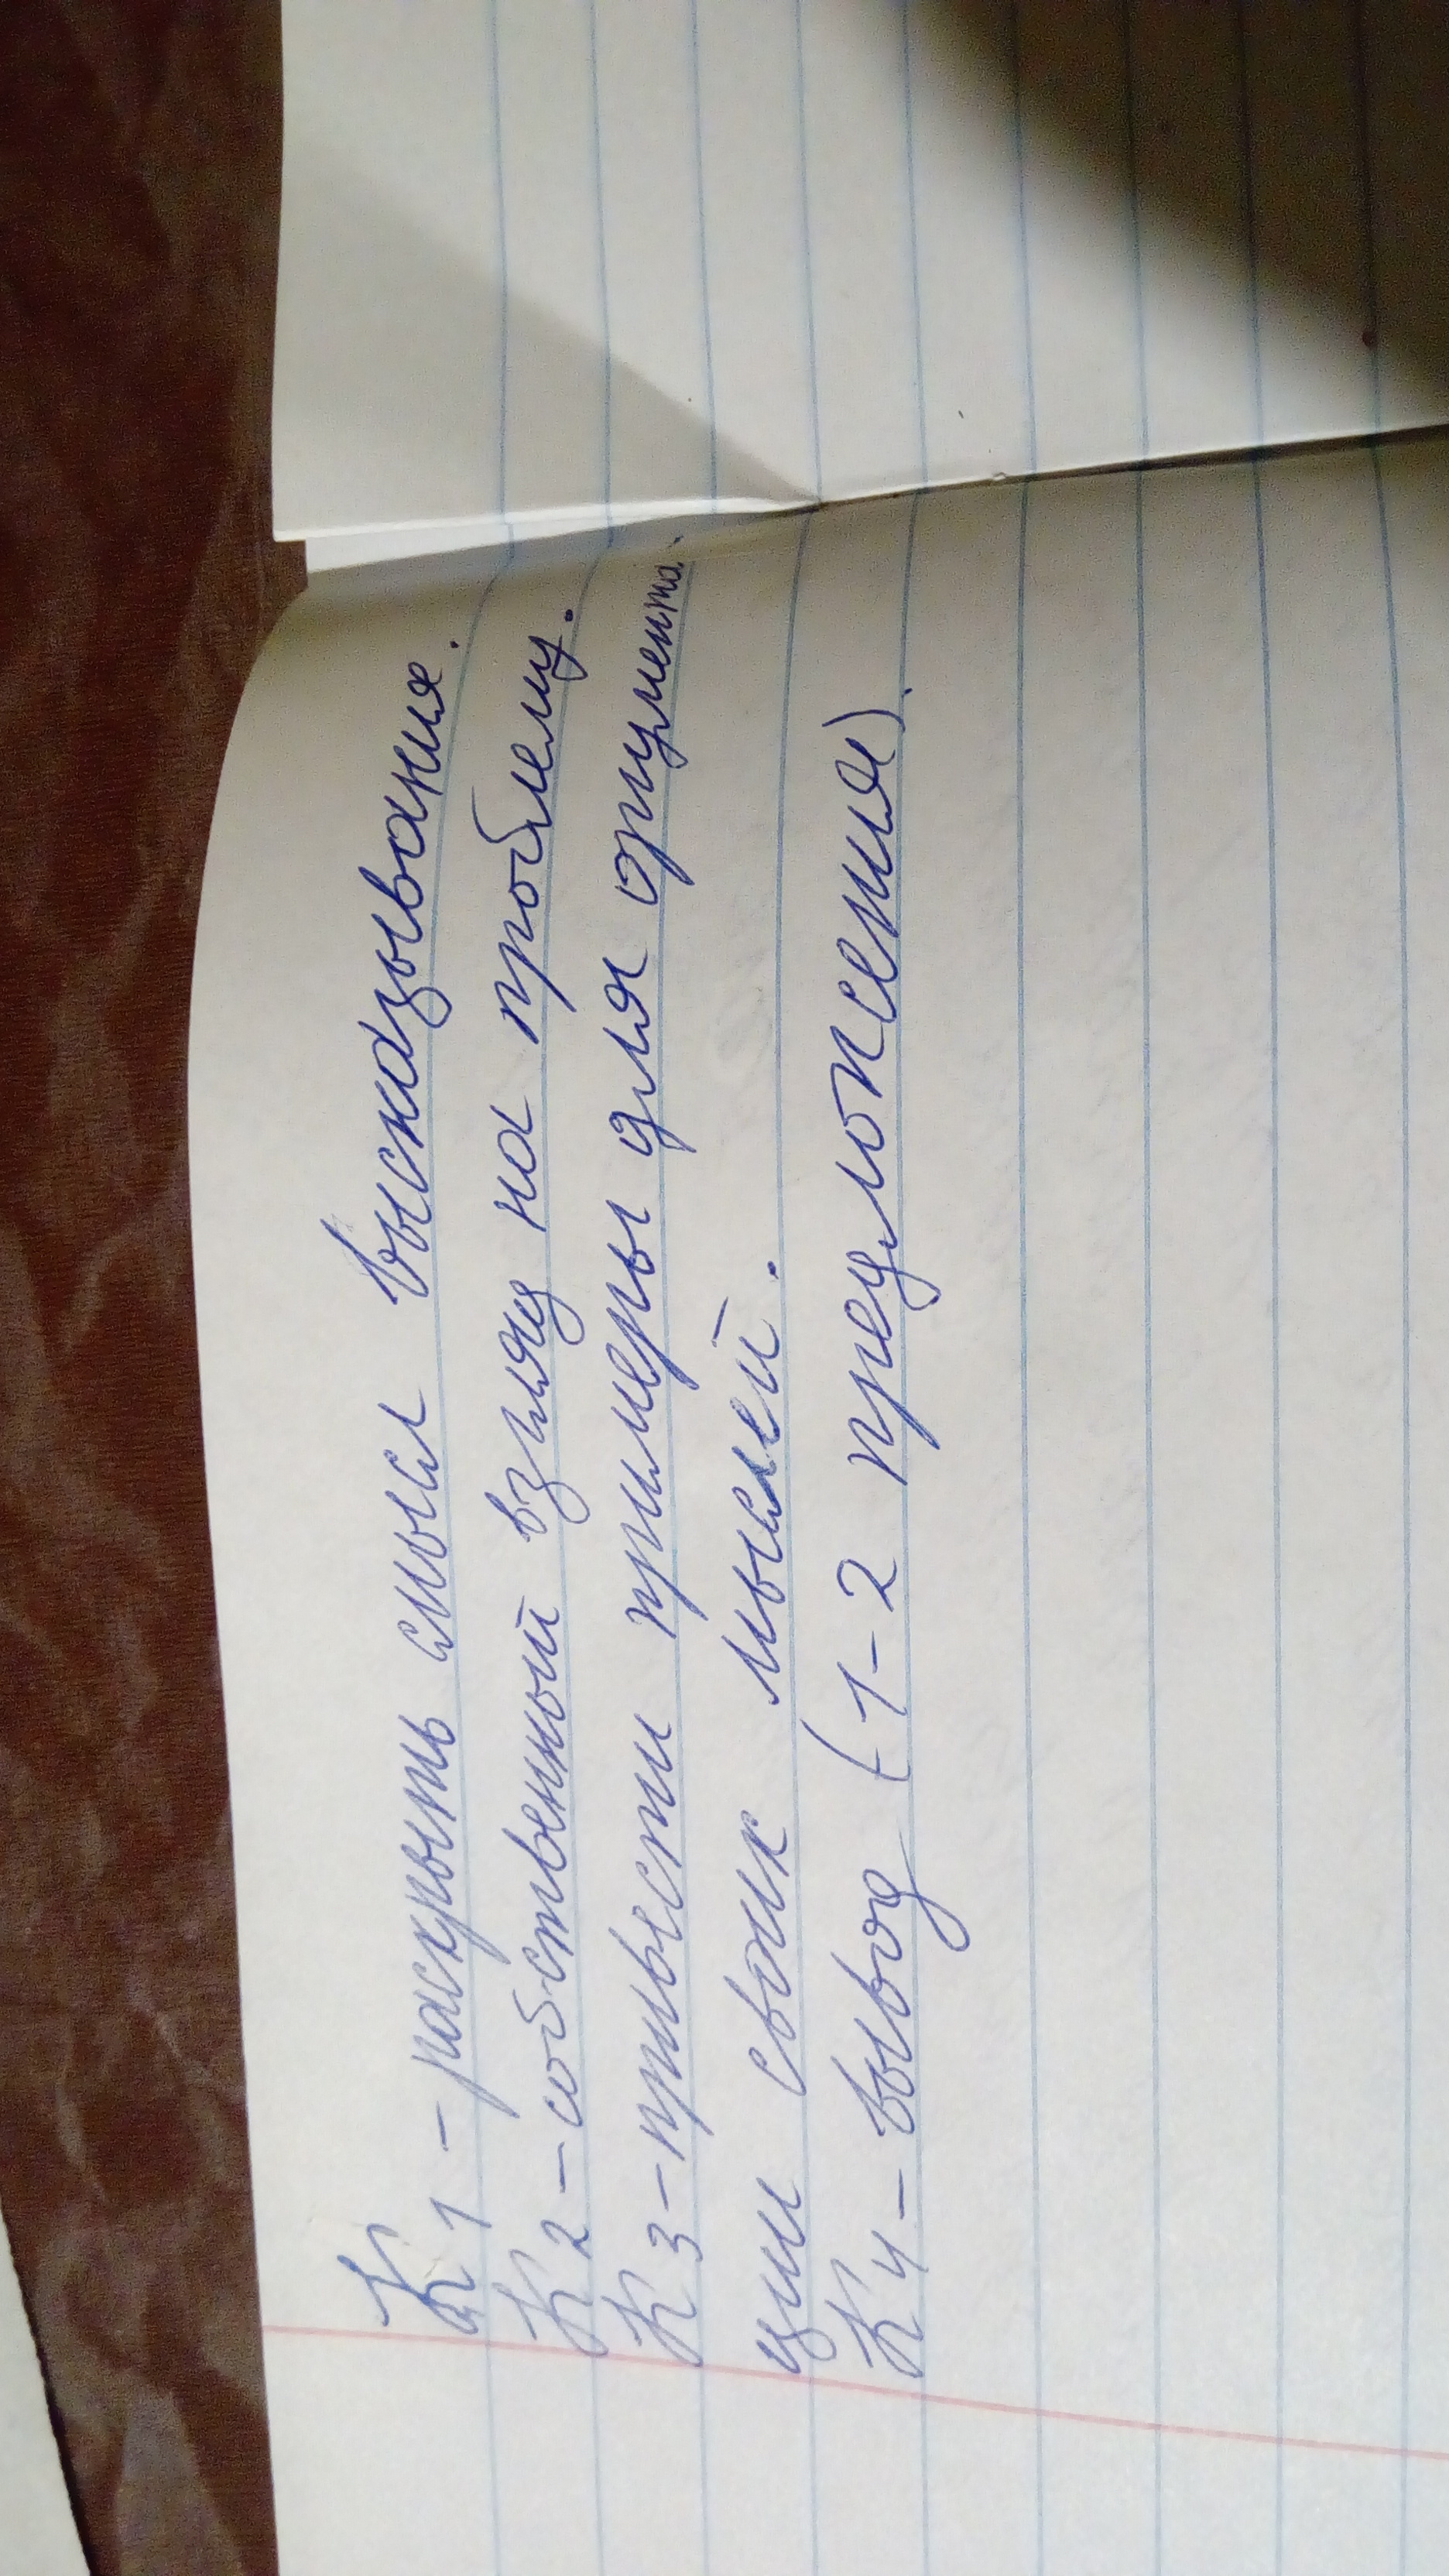 К1 - раскрыть смысл высказывания.
К2 - собственный взгляд на проблему.
К3 - привести примеры для аргумента-
ции своих мыслей.
К4 - вывод (1-2 предложения).